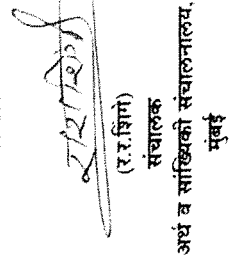 (र.र.शिंगे)
संचालक
अर्थ व सांख्यिकी संचालनालय,
मुंबई